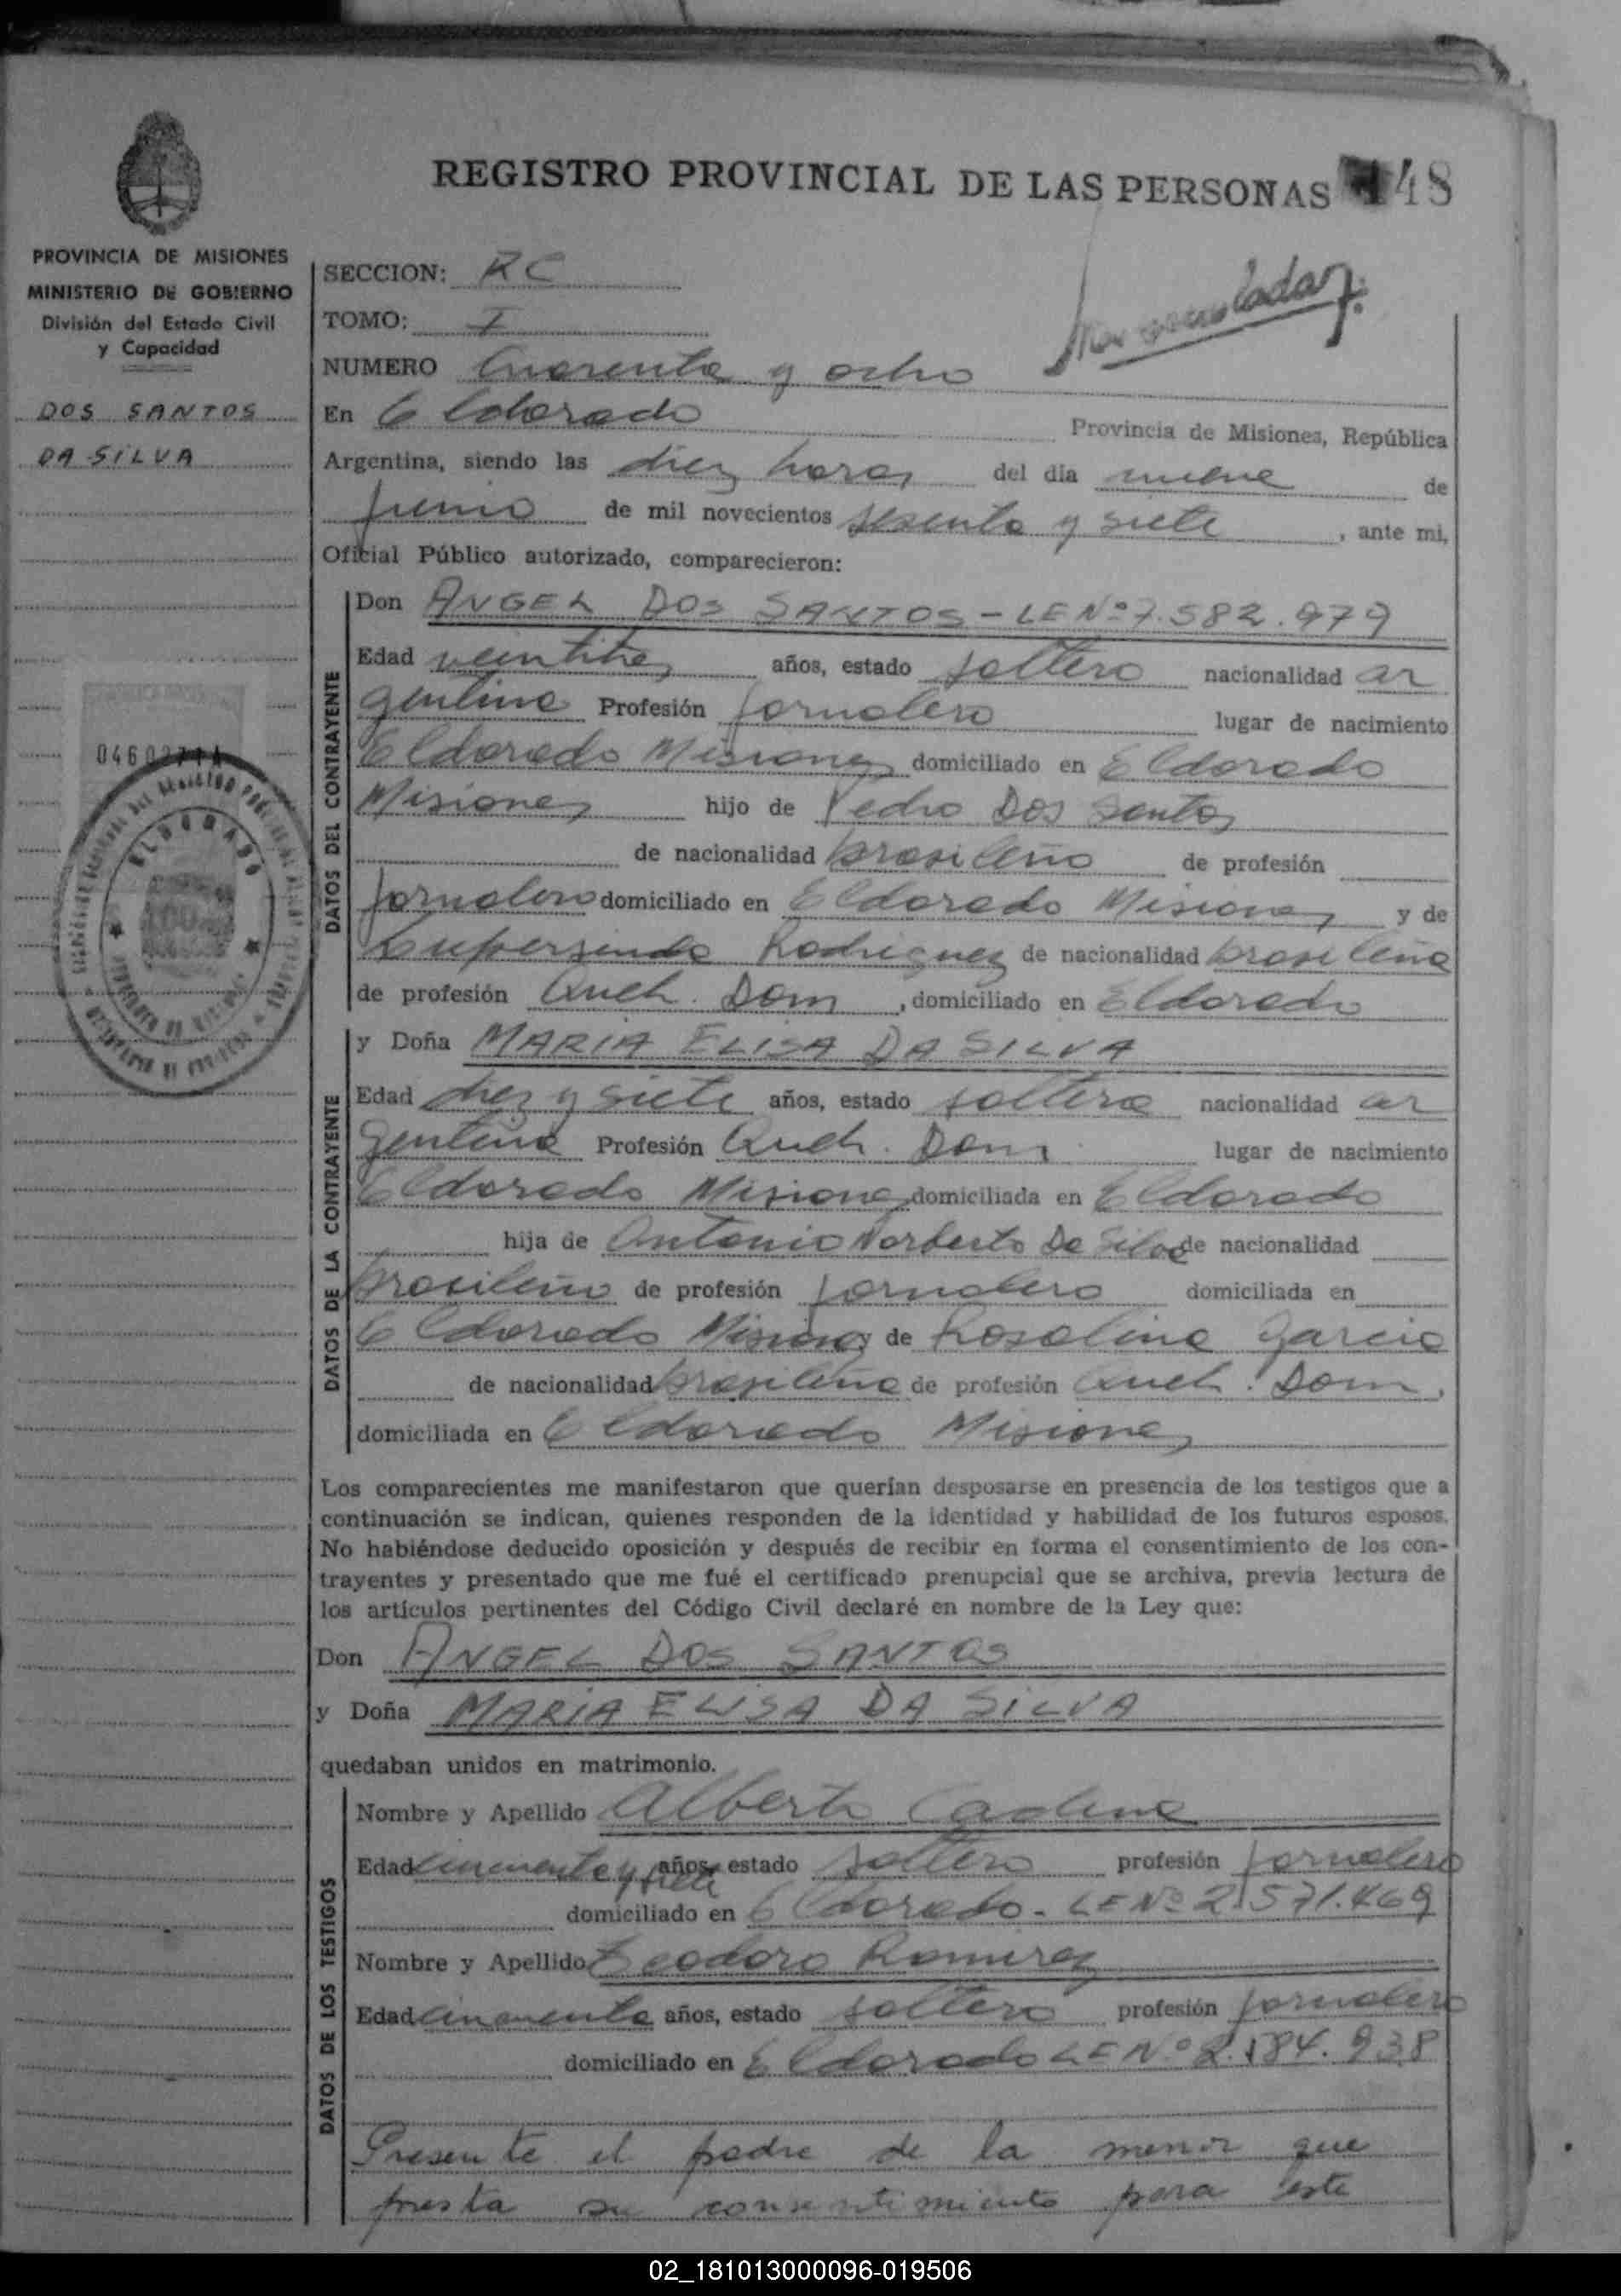 REGISTRO PROVINCIAL DE LAS PERSONAS 148
PROVINCIA DE MISIONES
MINISTERIO DE GOBIERNO
División del Estado Civil
y Capacidad
DOS SANTOS
DA SILVA
ELDORADO
SECCION: RC
TOMO: I
NUMERO Cuarenta y ocho
En Eldorado Provincia de Misiones, República
Argentina, siendo las diez horas del día nueve de
junio de mil novecientos sesenta y siete, ante mi,
Oficial Público autorizado, comparecieron:
DATOS DEL CONTRAYENTE
Don ANGEL DOS SANTOS - LE Nº 7.582.979
Edad veintitres años, estado soltero nacionalidad ar
gentino Profesión Jornalero lugar de nacimiento
Eldorado Misiones domiciliado en Eldorado
Misiones hijo de Pedro Dos Santos
de nacionalidad brasileño de profesión
Jornalero domiciliado en Eldorado Misiones y de
Rodriguez de nacionalidad brasileña
de profesión Queh. Dom, domiciliado en Eldorado
DATOS DE LA CONTRAYENTE
y Doña MARIA ELISA DA SILVA
Edad diez y siete años, estado soltera nacionalidad ar
gentina Profesión Queh. Dom lugar de nacimiento
Eldorado Misiones domiciliada en Eldorado
hija de Antonio Norberto Da Silva de nacionalidad
brasileño de profesión Jornalero domiciliada en
Eldorado Misiones y de Rosalina Garcia
de nacionalidad brasileña de profesión Queh. Dom,
domiciliada en Eldorado Misiones
Los comparecientes me manifestaron que querían desposarse en presencia de los testigos que a
continuación se indican, quienes responden de la identidad y habilidad de los futuros esposos.
No habiéndose deducido oposición y después de recibir en forma el consentimiento de los con-
trayentes y presentado que me fué el certificado prenupcial que se archiva, previa lectura de
los artículos pertinentes del Código Civil declaré en nombre de la Ley que:
Don ANGEL DOS SANTOS
y Doña MARIA ELISA DA SILVA
quedaban unidos en matrimonio.
DATOS DE LOS TESTIGOS
Nombre y Apellido Alberto
Edad cincuenta y siete años, estado soltero profesión Jornalero
domiciliado en Eldorado - LE Nº 2.571.469
Nombre y Apellido Teodoro Ramirez
Edad cincuenta años, estado soltero profesión Jornalero
domiciliado en Eldorado LE Nº 2.184.938
Presente el padre de la menor que
presta su consentimiento para este
02_181013000096-019506